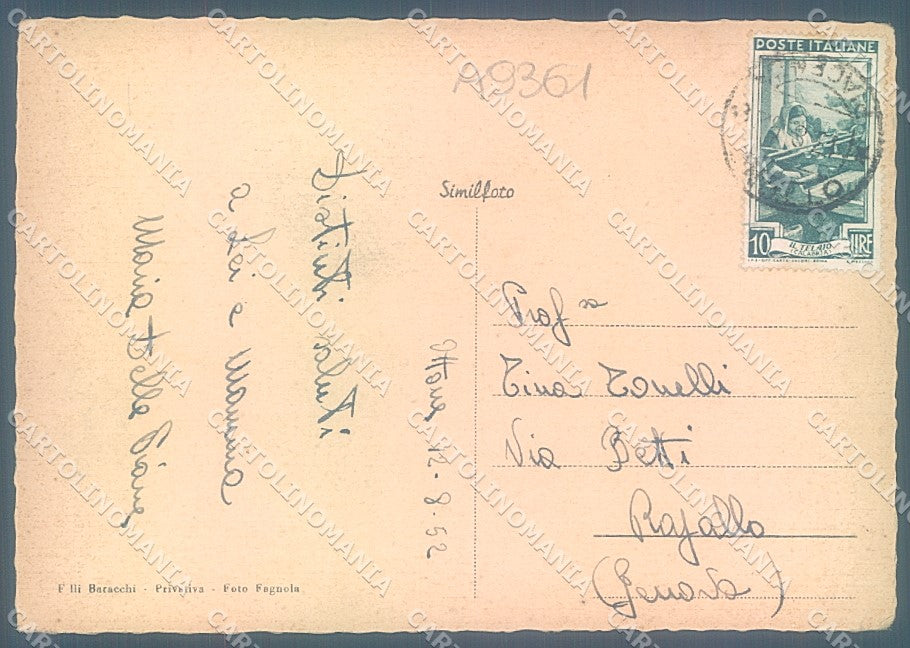 A9361
POSTE ITALIANE
10 LIRE
IL TELAIO
(CALABRIA)
Similfoto
Distinti saluti
a Lei e Mamma
Maria Della Piane
12-8-52
Prof.a
Tina Tonelli
Via Betti
Rapallo
(Genova)
F.lli Baracchi - Privativa - Foto Fagnola
CARTOLINOMANIA